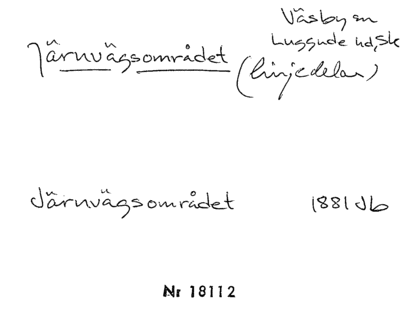 Väsby sn
Luggude hd, Sk
Järnvägsområdet (linjedelar)
Järnvägsområdet 1881 Jb
Nr 18112